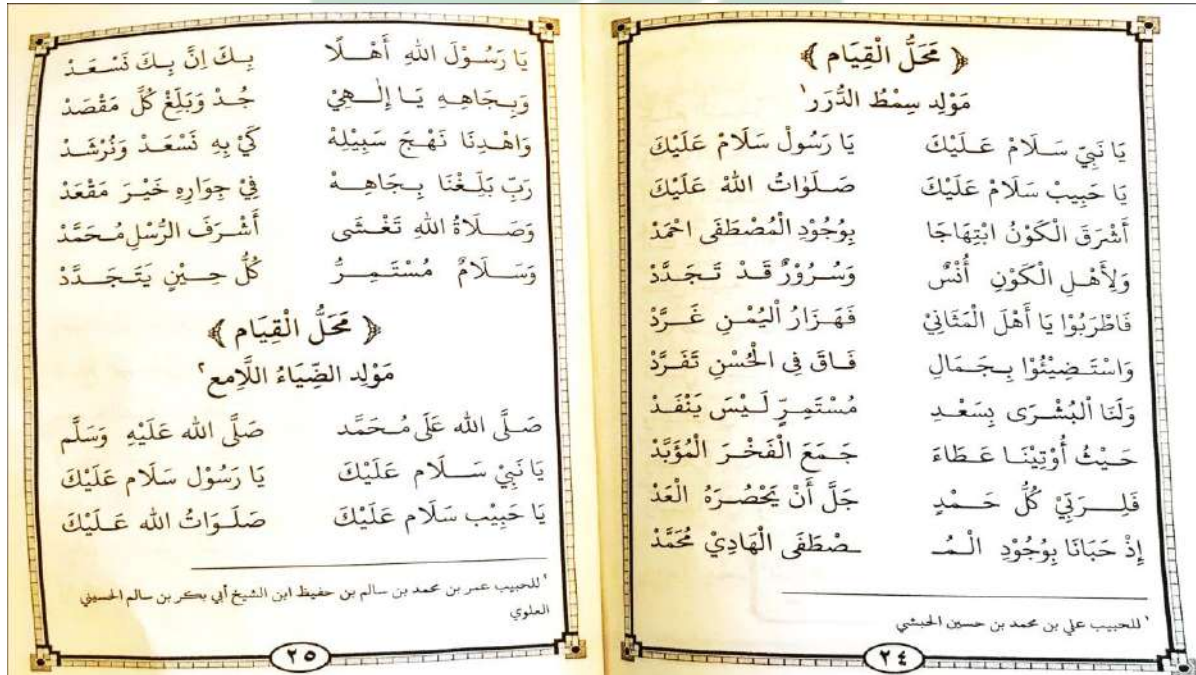 ﴿ مَحَلُّ الْقِيَام ﴾
مَوْلِد سِمْطُ الدُّرَر ١
يَا نَبِيّ سَـلَامْ عَـلَيْكَ يَا رَسُولْ سَلَامْ عَلَيْكَ
يَا حَبِيبْ سَلَامْ عَلَيْكَ صَـلَوٰاتُ اللهْ عَلَيْكَ
أَشْرَقَ الْكَوْنُ ابْتِهَاجَا بِوُجُودِ الْمُصْطَفَى احْمَدْ
وَلِأَهْـلِ الْكَوْنِ أُنْسٌ وَسُرُورٌ قَـدْ تَـجَدَّدْ
فَاطْرَبُوْا يَا أَهْلَ الْمَثَانِيْ فَهَـزَارُ اْليُمْـنِ غَـرَّدْ
وَاسْتَـضِيْئُوْا بِـجَمَالِ فَـاقَ فِى الْحُسْنِ تَفَرَّدْ
وَلَنَا اْلبُشْـرَى بِسَعْـدِ مُسْتَمِـرٍّ لَـيْسَ يَنْفَـدْ
حَـيْثُ أُوْتِيْنَـا عَـطَاءَ جَـمَعَ الْفَخْـرَ الْمُؤَبَّدْ
فَلِـرَبِّيْ كُلُّ حَـمْـدٍ جَلَّ أَنْ يَحْصُـرَهُ الْعَدّْ
إِذْ حَبَانَا بِوُجُوْدِ الْـمُـ ـصْطَفَى الْهَادِيْ مُحَمَّدْ
١ للحبيب علي بن محمد بن حسين الحبشي
٢٤
يَا رَسُوْلَ اللهِ أَهْـلًا بِـكَ اِنَّ بِـكَ نَسْـعَدْ
وَبِـجَاهِـهِ يَـا إِلٰـهِيْ جُـدْ وَبَلِّغْ كُلَّ مَقْصَدْ
وَاهْـدِنَا نَهْـجَ سَبِيْلِهْ كَيْ بِهِ نَسْعَـدْ وَنُرْشَـدْ
رَبِّ بَلِّـغْنَا بِـجَاهِـهْ فِيْ جِوَارِهِ خَيْـرَ مَقْعَدْ
وَصَـلَاةُ اللهِ تَغْـشَى أَشْـرَفَ الرُّسْلِ مُـحَمَّدْ
وَسَـلَامٌ مُسْتَـمِـرٌّ كُلَّ حِـيْنٍ يَتَـجَـدَّدْ
﴿ مَحَلُّ الْقِيَام ﴾
مَوْلِد الضِّيَاءُ اللَّامِع ٢
صَـلَّى الله عَلَى مُـحَمَّد صَلَّى الله عَلَيْهِ وَسَلَّم
يَا نَبِيْ سَـلَام عَلَيْكَ يَا رَسُوْل سَلَام عَلَيْكَ
يَا حَبِيْب سَلَام عَلَيْكَ صَلَـوَاتُ الله عَـلَيْكَ
٢ للحبيب عمر بن محمد بن سالم بن حفيظ ابن الشيخ أبي بكر بن سالم الحسيني
العلوي
٢٥